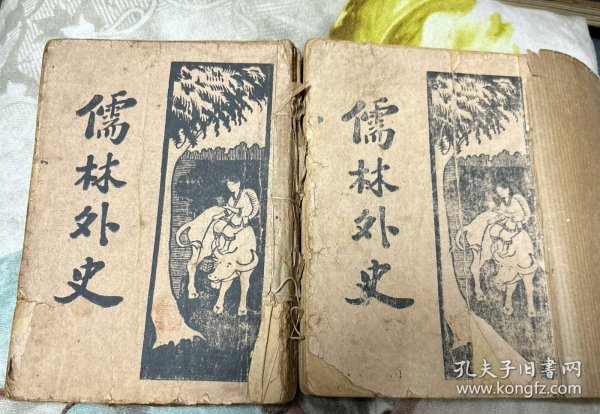 儒林外史
儒林外史
孔夫子旧书网
www.kongfz.com